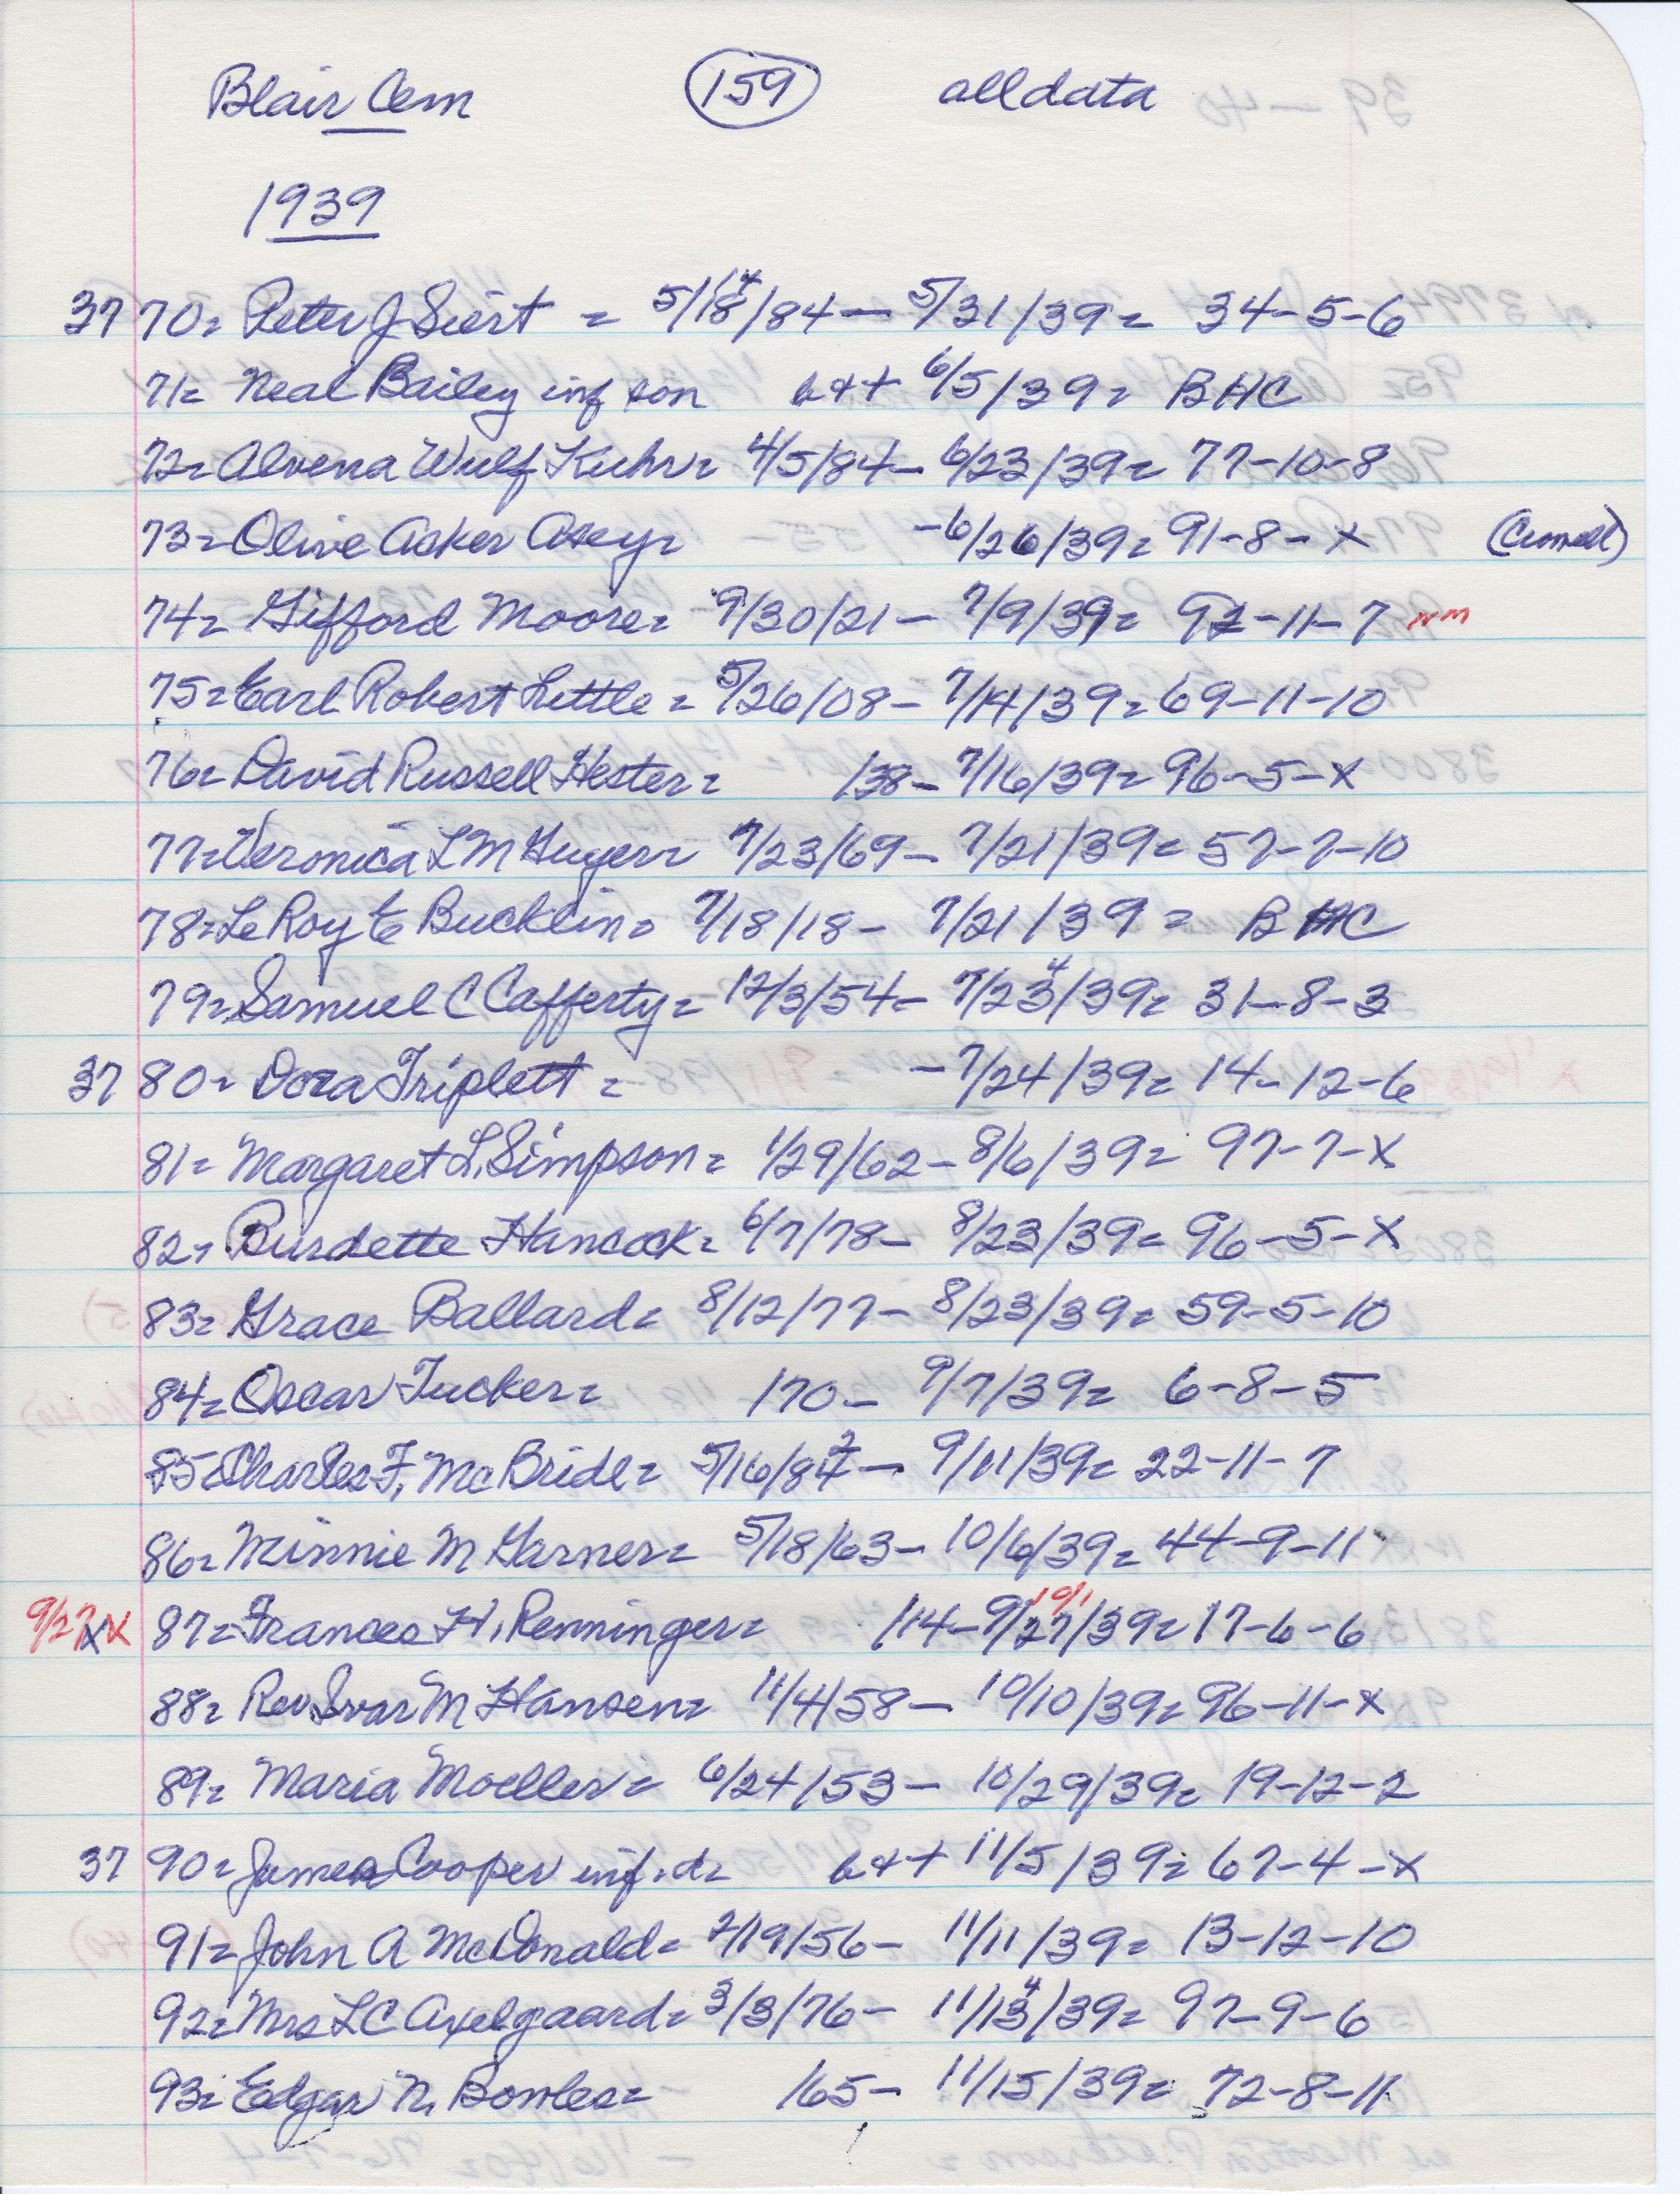 Blair Cem 159 alldata
1939
37 70= Peter J Siert = 5/18/84 — 5/31/39 = 34-5-6
71= Neal Bailey inf son b++ 6/5/39 = BHC
72= Alvena Wulf Kuhr = 4/5/84 - 6/23/39 = 77-10-8
73= Olive Asker Axey = - 6/26/39 = 91-8-X
74= Gifford Moore = 9/30/21 - 7/9/39 = 92-11-7 nm
75= Earl Robert Little = 5/26/08 - 7/14/39 = 69-11-10
76= David Russell Hester = 138 - 7/16/39 = 96-5-X
77= Veronica L M Guyer = 7/23/69 - 7/21/39 = 57-7-10
78= LeRoy E Bucklin = 7/18/18 - 7/21/39 = BHC
79= Samuel C Cafferty = 12/3/54 - 7/23/39 = 31-8-3
37 80= Dora Triplett = - 7/24/39 = 14-12-6
81= Margaret L. Simpson = 1/29/62 - 8/6/39 = 97-7-X
82= Burdette Hancock = 6/7/78 - 8/23/39 = 96-5-X
83= Grace Ballard = 8/12/77 - 8/23/39 = 59-5-10
84= Oscar Tucker = 170 - 9/7/39 = 6-8-5
85= Charles F. McBride = 5/16/84 - 9/11/39 = 22-11-7
86= Minnie M Garner = 5/18/63 - 10/6/39 = 44-9-11
9/27 XX 87= Frances H. Renninger = 114 - 9/27/39 = 17-6-6
88= Rev Ivar M Hansen = 11/4/58 - 10/10/39 = 96-11-X
89= Maria Moeller = 6/24/53 - 10/29/39 = 19-12-2
37 90= James Cooper inf. d= b++ 11/5/39 = 67-4-X
91= John A McDonald = 2/19/56 - 11/11/39 = 13-12-10
92= Mrs L C Axelgaard = 3/3/76 - 11/13/39 = 97-9-6
93= Edgar N. Bowles = 165 - 11/15/39 = 72-8-11